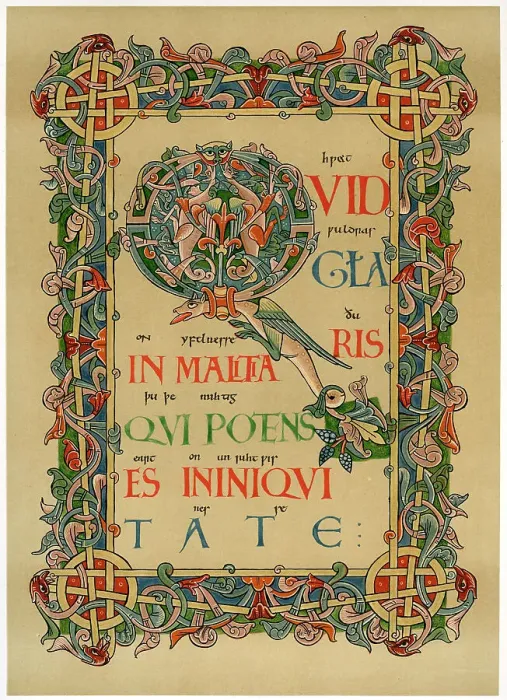 hƿæt
QVID
ƿuldras
GŁA
ðu
RIS
on yfelnesse
IN MALITIA
þu þe mihtig
QVI POTENS
eart on un riht ƿis
ES ININIQVI
nes se
TATE: